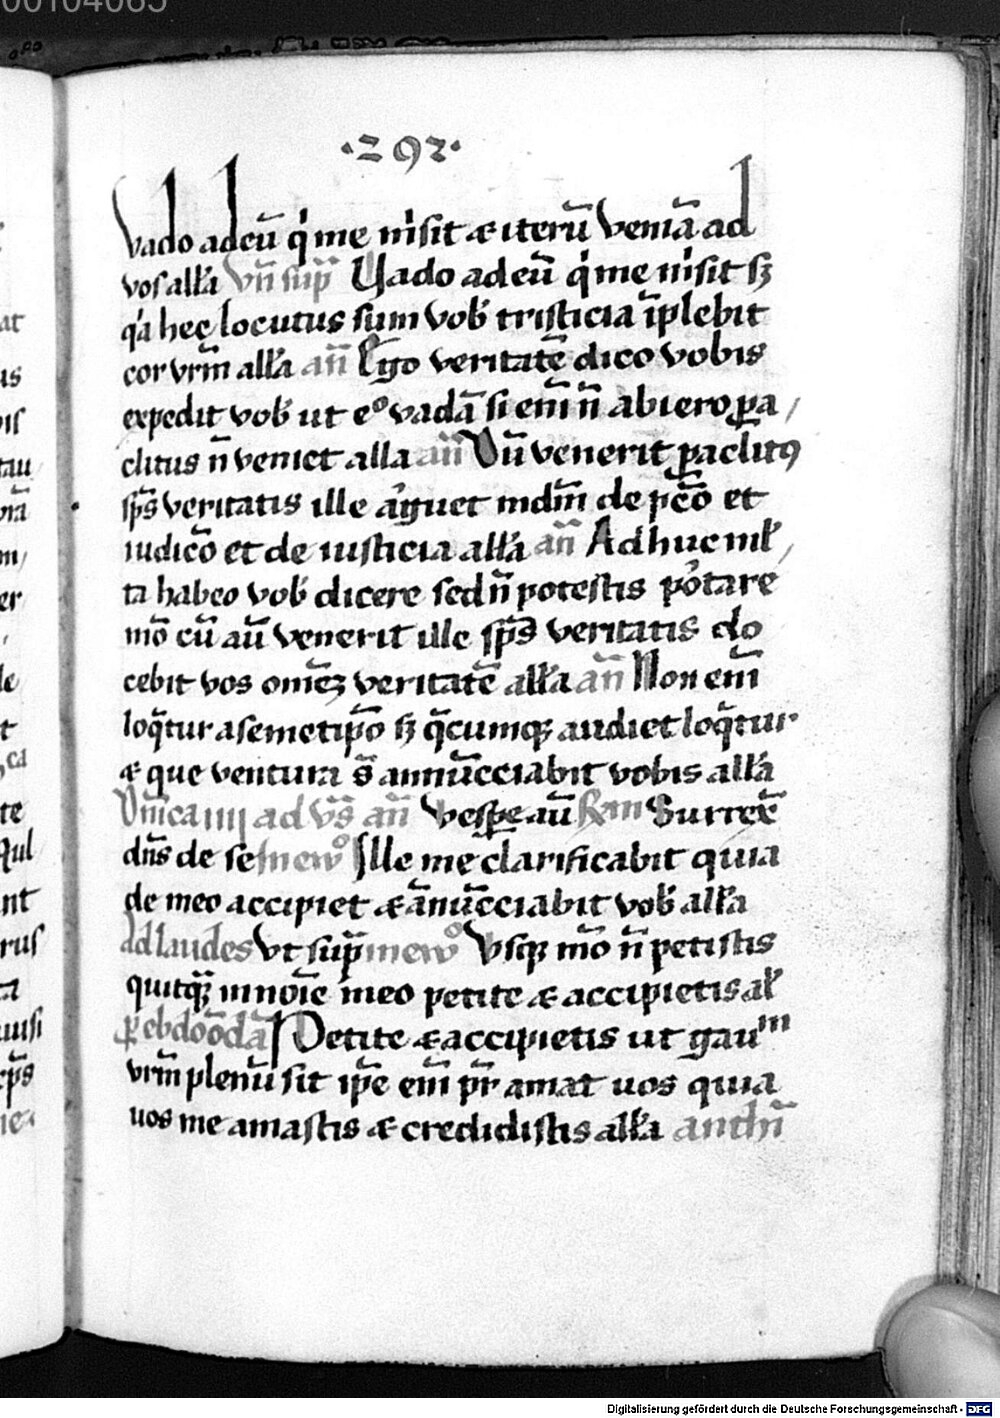 00104065
·292·
Vado ad eū q̇ me misit ⁊ iterū veniā ad
vos alła vn̄ sup̄ Vado ad eū q̇ me misit sꝫ
q'a hec locutus sum vob' tristicia īplebit
cor vrm̄ alła an̄ Ego veritatē dico vobis
expedit vob' ut e° vadā si em̄ n̄ abiero ꝑa
clitus n̄ veniet alla an̄ Cū venerit ꝑaclitꝰ
sp̄s veritatis ille arguet mdm̄ de pc̄co et
iudico̅ et de iusticia alła an̄ Adhuc mł
ta habeo vob' dicere sed n̄ potestis po'tare
mō cū aū venerit ille sp̄s veritatis do
cebit vos omēꝫ veritatē alła an̄ Non em̄
loq̄tur a semetip̄o sꝫ q̄cumqꝫ audiet loq̄tur
⁊ que ventura s̄ annūcciabit vobis alła
Dm̄ca iiij ad vs̄ an̄ Vesꝑe aū Ram Surrex̄
dn̄s de se in ew° Ille me clarificabit quia
de meo accipiet ⁊ ānūcciabit vob' alła
Ad laudes vt sup̄ in ew° Vsqꝫ mō n̄ petistis
quitq̄ꝫ in noīe meo petite ⁊ accipietis ał
ꝑ ebdoōdā Petite ⁊ accipietis ut gauᵐ
vrm̄ plenū sit ip̄e em̄ pr̄ amat uos quia
uos me amastis ⁊ credidistis alła anthn̄
Digitalisierung gefördert durch die Deutsche Forschungsgemeinschaft - DFG